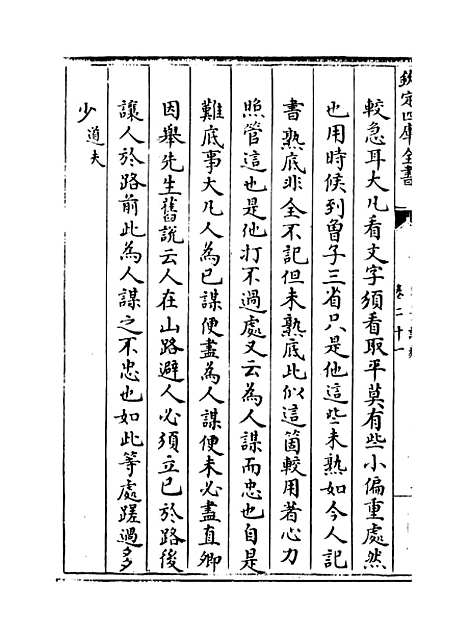 欽定四庫全書
卷二十一
較急耳大凡看文字須看取平莫有些小偏重處然
也用時候到曾子三省只是他這些未熟如今人記
書熟底非全不記但未熟底比似這箇較用著心力
照管這也是他打不過處又云為人謀而忠也自是
難底事大凡人為己謀便盡為人謀便未必盡直卿
因舉先生舊說云人在山路避人必須立己於路後
讓人於路前此為人謀之不忠也如此等處蹉過多
少道夫